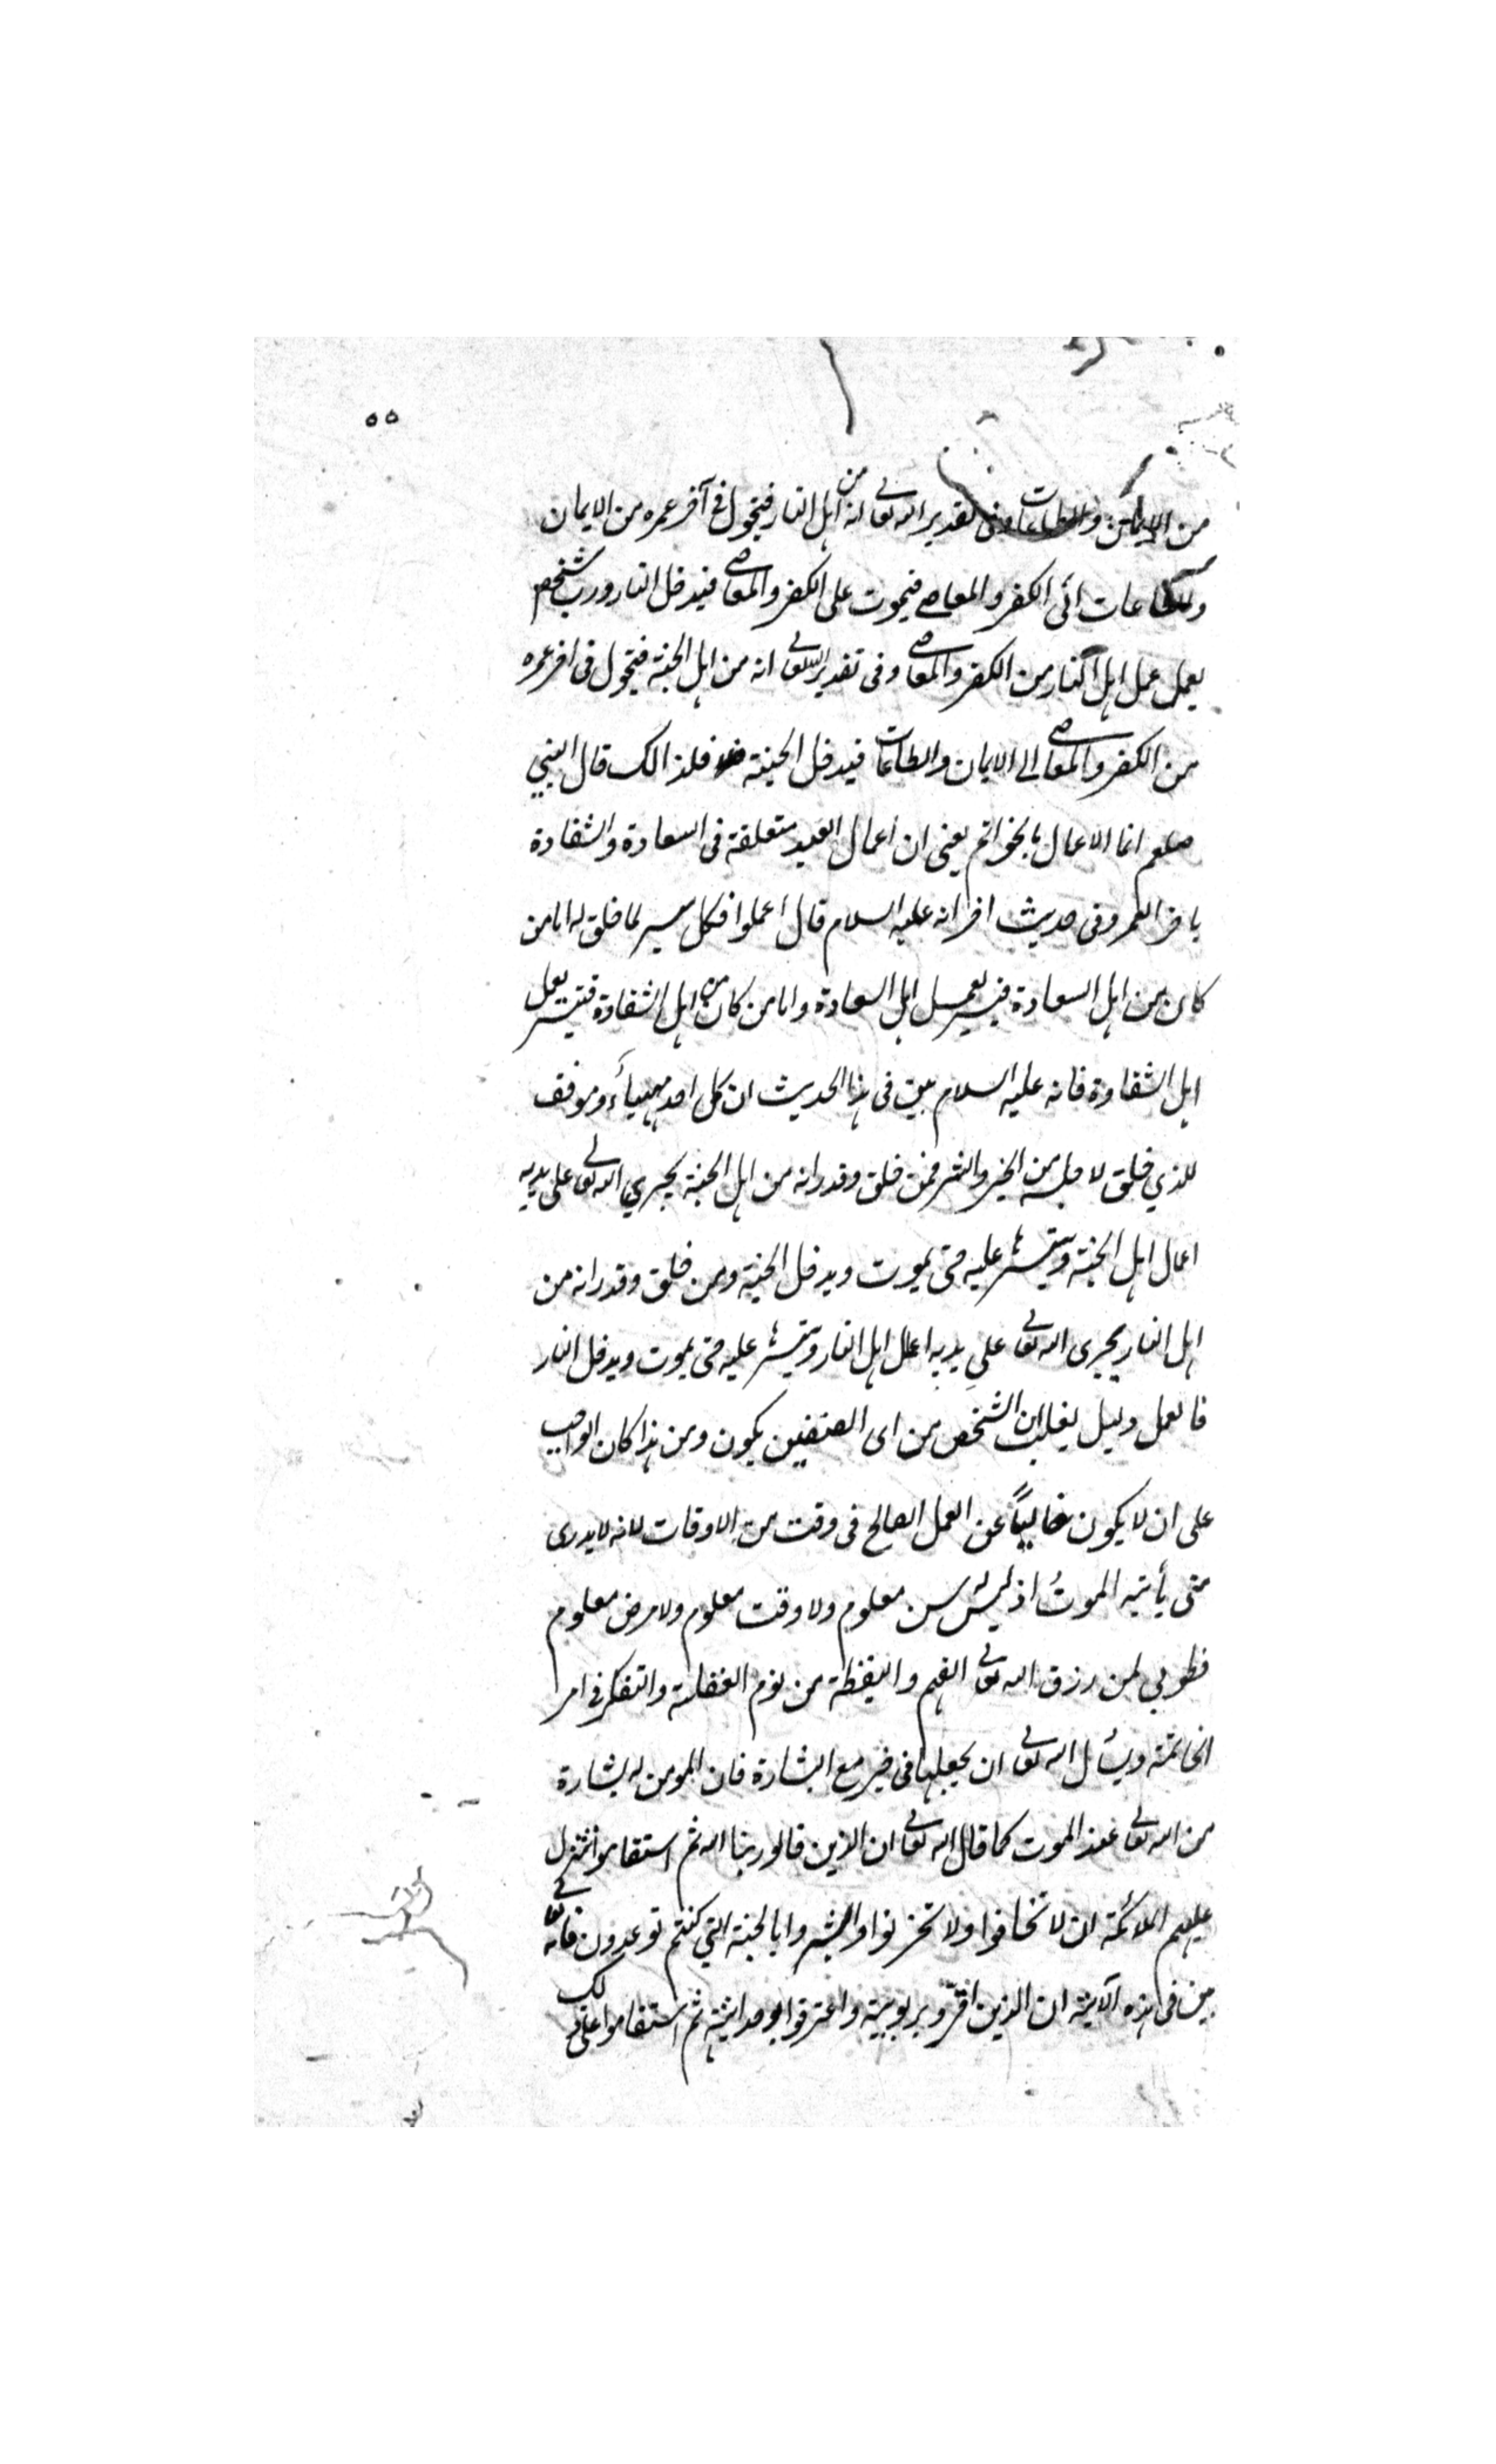 ٥٥
من الايمان والطاعات وفى تقدير الله تعالى انه من اهل النار فيتحول فى آخر عمره من الايمان
والطاعات الى الكفر والمعاصى فيموت على الكفر والمعاصى فيدخل النار ورب شخص
يعمل عمل اهل النار من الكفر والمعاصى وفى تقدير الله تعالى انه من اهل الجنة فيتحول فى اخر عمره
من الكفر والمعاصى الى الايمان والطاعات فيدخل الجنة فلذالك قال النبي
صلعم انما الاعمال بالخواتم يعنى ان اعمال العبد متعلقة فى السعادة والشقاوة
باخر العمر وفى حديث اخر انه عليه السلام قال اعملوا فكل ميسر لما خلق له اما من
كان من اهل السعادة فييسر لعمل اهل السعادة واما من كان من اهل الشقاوة فييسر لعمل
اهل الشقاوة فانه عليه السلام بين فى هذا الحديث ان كل احد مهيأ وموفق
للذي خلق لاجله من الخير والشر فمن خلق وقدر انه من اهل الجنة يجري الله تعالى على يديه
اعمال اهل الجنة وييسرها عليه حتى يموت ويدخل الجنة ومن خلق وقدر انه من
اهل النار يجرى الله تعالى على يديه اعمال اهل النار وييسرها عليه حتى يموت ويدخل النار
فالعمل دليل يغلب ان الشخص من اى الصنفين يكون ومن هذا كان الواجب
على ان لا يكون خالياً عن العمل الصالح فى وقت من الاوقات لانه لا يدرى
متى يأتيه الموت اذ ليس له سن معلوم ولا وقت معلوم ولا مرض معلوم
فطوبي لمن رزق الله تعالى الفهم واليقظة من نوم الغفلة والتفكر فى امر
الخاتمة ويسأل الله تعالى ان يجعلها فى خير مع البشارة فان المومن له بشارة
من الله تعالى عند الموت كما قال الله تعالى ان الذين قالو ربنا الله ثم استقاموا تتنزل
عليهم الملائكة ان لا تخافوا ولا تحزنوا وابشروا بالجنة التي كنتم توعدون فانه تعالى
بين فى هذه الآية ان الذين اقرّو بربوبيته واعترفوا بوحدانيته ثم استقاموا على ذلك